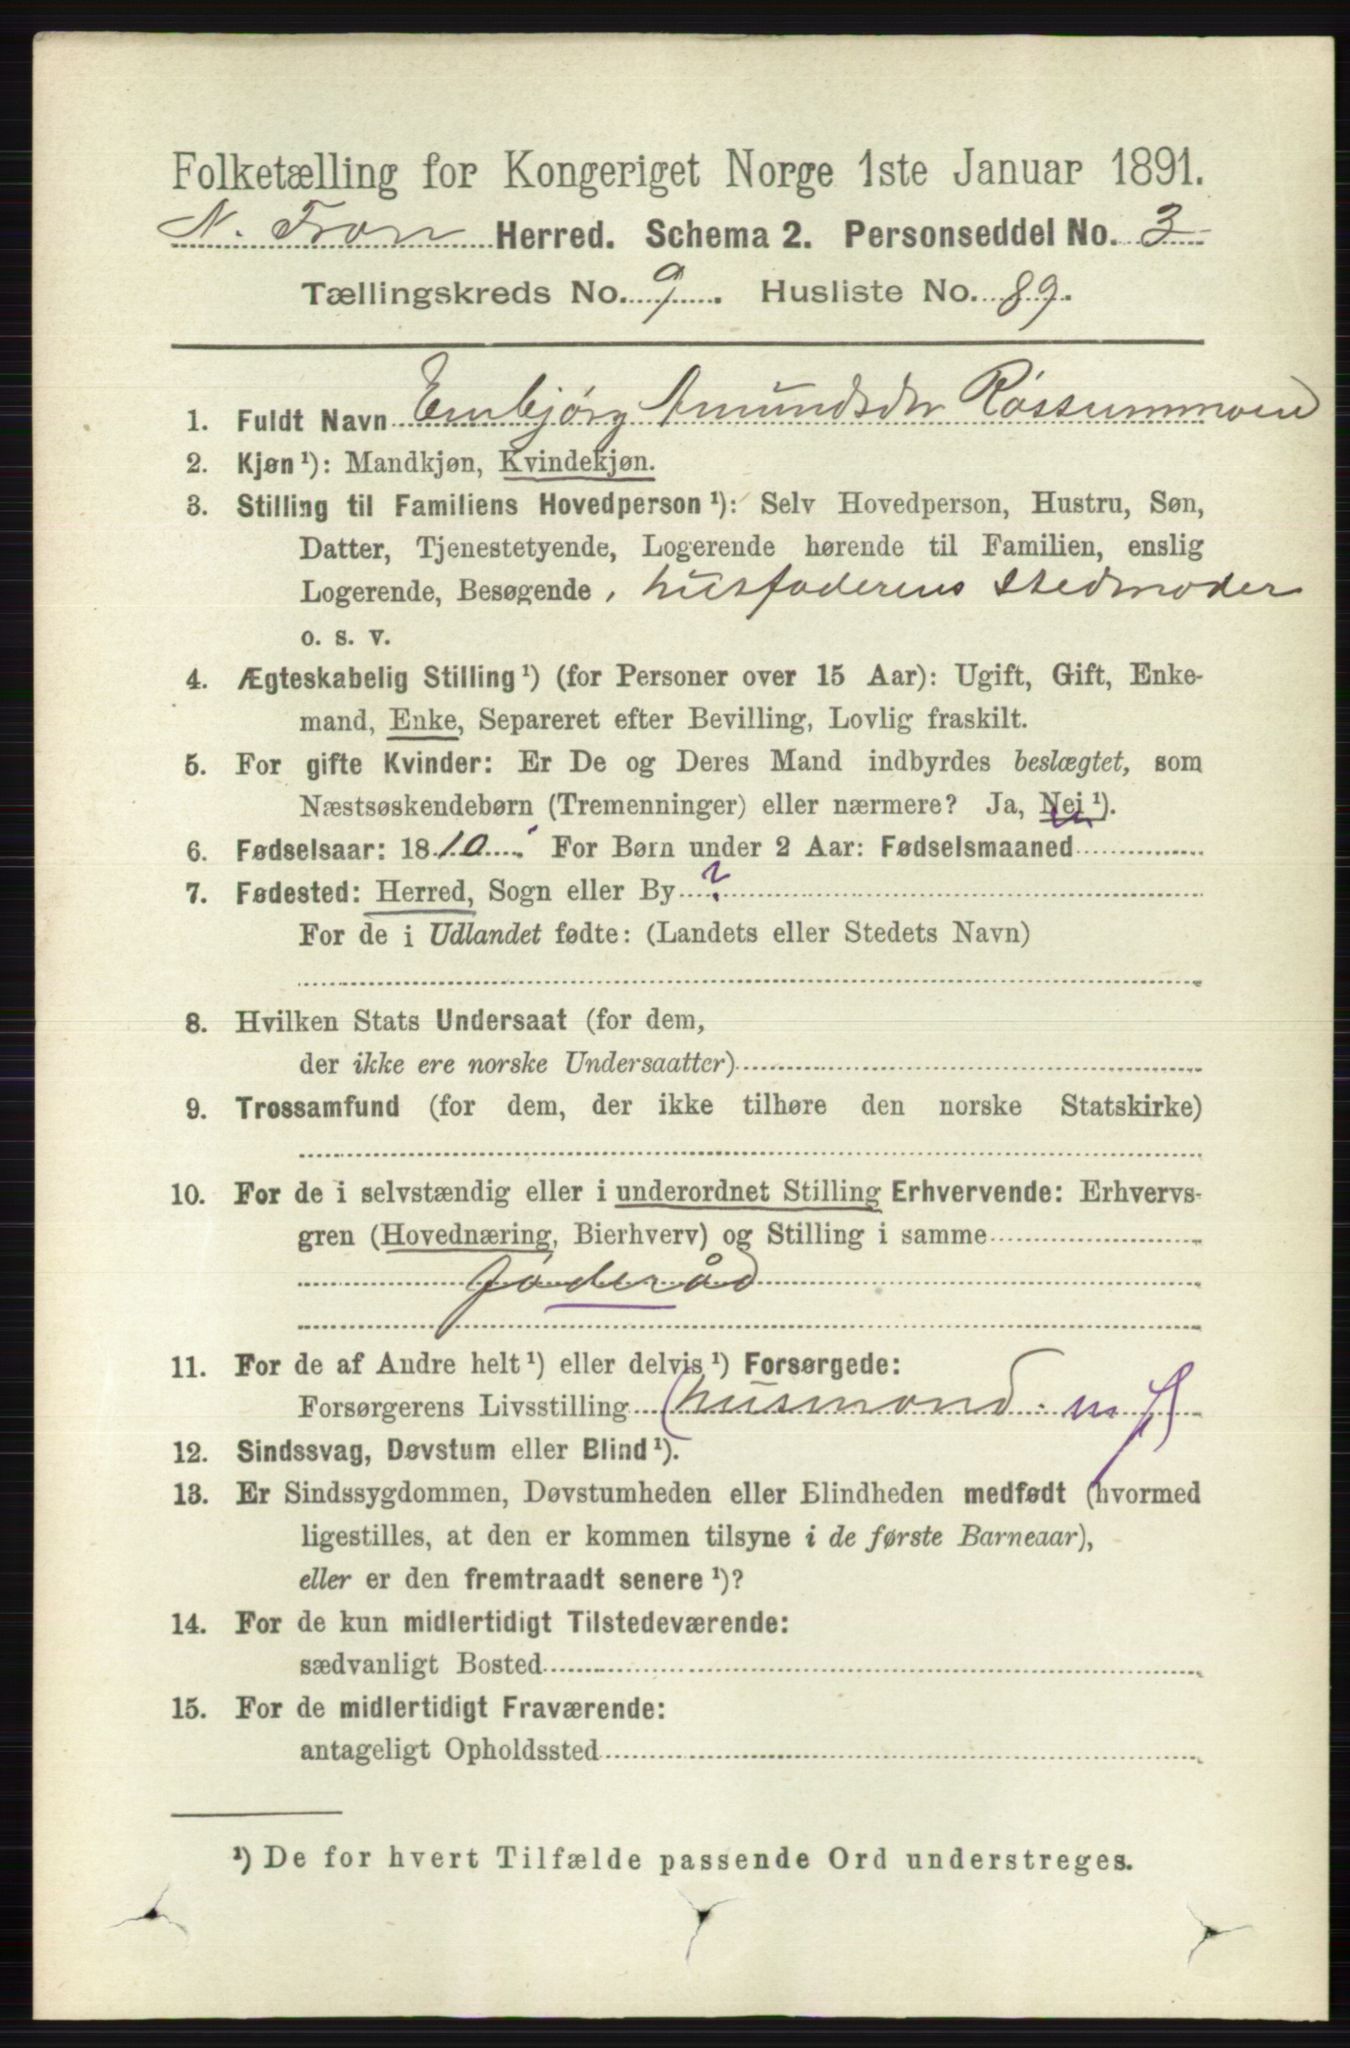 Folketælling for Kongeriget Norge 1ste Januar 1891.
N. Fron Herred. Schema 2. Personseddel No. 3
Tællingskreds No. 9. Husliste No. 89.
1. Fuldt Navn Embjørg Amundsdtr Rossummoen
2. Kjøn ¹): Mandkjøn, Kvindekjøn.
3. Stilling til Familiens Hovedperson ¹): Selv Hovedperson, Hustru, Søn,
Datter, Tjenestetyende, Logerende hørende til Familien, enslig
Logerende, Besøgende, husfaderens Stedmoder
o. s. v.
4. Ægteskabelig Stilling ¹) (for Personer over 15 Aar): Ugift, Gift, Enke-
mand, Enke, Separeret efter Bevilling, Lovlig fraskilt.
5. For gifte Kvinder: Er De og Deres Mand indbyrdes beslægtet, som
Næstsøskendebørn (Tremenninger) eller nærmere? Ja, Nei ¹).
6. Fødselsaar: 1810. For Børn under 2 Aar: Fødselsmaaned
7. Fødested: Herred, Sogn eller By ?
For de i Udlandet fødte: (Landets eller Stedets Navn)
8. Hvilken Stats Undersaat (for dem,
der ikke ere norske Undersaatter)
9. Trossamfund (for dem, der ikke tilhøre den norske Statskirke)
10. For de i selvstændig eller i underordnet Stilling Erhvervende: Erhvervs-
gren (Hovednæring, Bierhverv) og Stilling i samme
föderåd
11. For de af Andre helt ¹) eller delvis ¹) Forsørgede:
Forsørgerens Livsstilling (husmand. m J)
12. Sindssvag, Døvstum eller Blind ¹).
13. Er Sindssygdommen, Døvstumheden eller Blindheden medfødt (hvormed
ligestilles, at den er kommen tilsyne i de første Barneaar),
eller er den fremtraadt senere ¹)?
14. For de kun midlertidigt Tilstedeværende:
sædvanligt Bosted
15. For de midlertidigt Fraværende:
antageligt Opholdssted
¹) De for hvert Tilfælde passende Ord understreges.